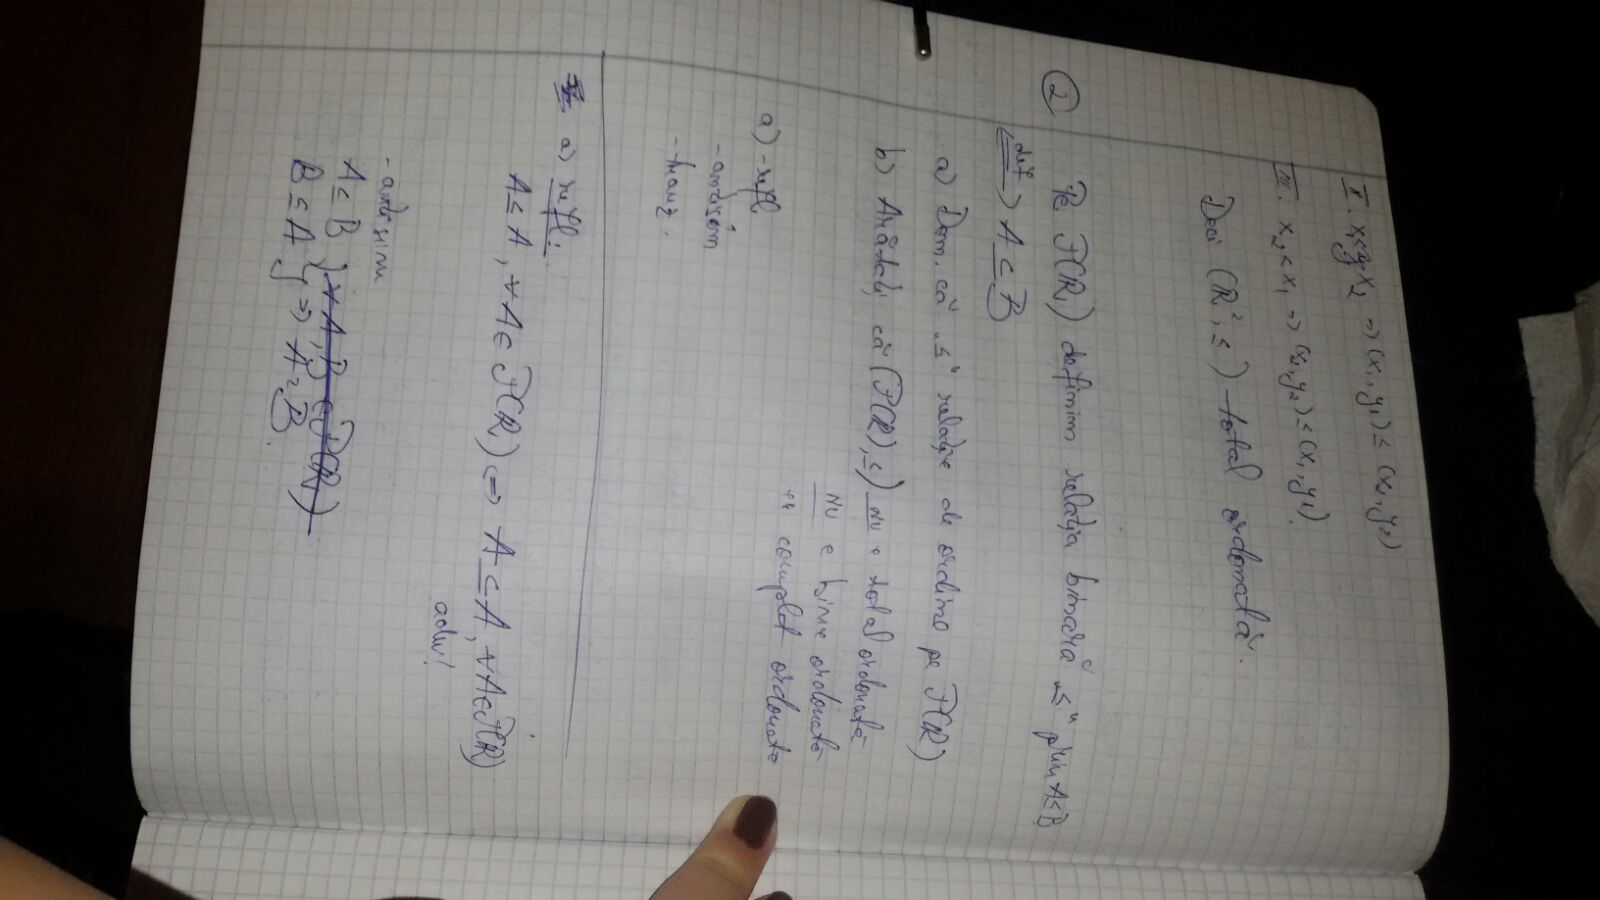 II. x₁<x₂ => (x₁,y₁) ≤ (x₂,y₂)
III. x₂<x₁ => (x₂,y₂) ≤ (x₁,y₁).
Deci (R², ≤) total ordonată.
② Pe P(R) definim relația binară „≤" prin A≤B
<=def=> A⊆B
a) Dem. că „≤" relație de ordine pe P(R)
b) Arătați că (P(R),≤) nu e total ordonată
NU e bine ordonată
e complet ordonată
a) - refl
- antisim
- tranz.
a) refl.
A≤A, ∀A∈P(R) <=> A⊆A, ∀A∈P(R)
adv!
- antisim
A≤B
B≤A } => A=B.
∀A,B∈P(R)